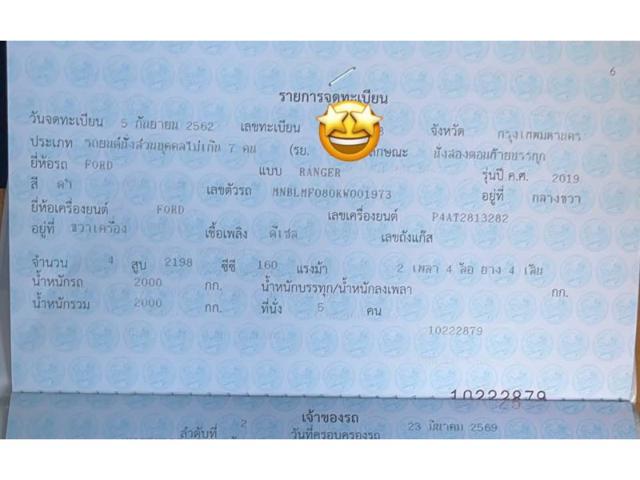 6
รายการจดทะเบียน
วันจดทะเบียน 5 กันยายน 2562 เลขทะเบียน จังหวัด กรุงเทพมหานคร
ประเภท รถยนต์นั่งส่วนบุคคลไม่เกิน 7 คน (รย. ลักษณะ นั่งสองตอนท้ายบรรทุก
ยี่ห้อรถ FORD แบบ RANGER รุ่นปี ค.ศ. 2019
สี ดำ เลขตัวรถ MNBLMF080KW001973 อยู่ที่ กลางขวา
ยี่ห้อเครื่องยนต์ FORD เลขเครื่องยนต์ P4AT2813282
อยู่ที่ ขวาเครื่อง เชื้อเพลิง ดีเซล เลขถังแก๊ส
จำนวน 4 สูบ 2198 ซีซี 160 แรงม้า 2 เพลา 4 ล้อ ยาง 4 เส้น
น้ำหนักรถ 2000 กก. น้ำหนักบรรทุก/น้ำหนักลงเพลา กก.
น้ำหนักรวม 2000 กก. ที่นั่ง 5 คน
10222879
10222879
เจ้าของรถ
ลำดับที่ 2 วันที่ครอบครองรถ 23 มีนาคม 2569